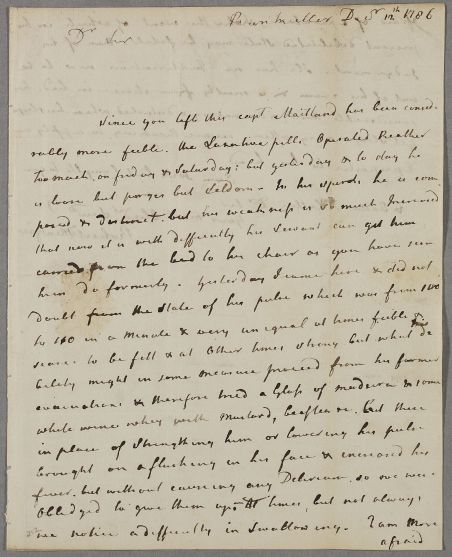 Dec 12th 1786
Dr Sir
Since you left this capt Maitland has been consid-
rably more feeble. the Laxative pills Operated Reather
too much on friday & Saturday: but yesterday & to day he
is loose but purges but Seldom. In his speech he is com-
posed & distinct. but his weakness is so much Increased
that now it is with difficulty his Servant can get him
carried from the bed to his chair as you have seen
him do formerly. Yesterday I came here & did not
doubt from the state of his pulse which was from 100
to 110 in a minute & very unequal at times feeble &
scarce to be felt & at other times strong but what
bility might in some measure proceed from his former
evacuations & therefore tried a Glass of madeira & some
white wine whey with Mustard, beaftea &c. but these
in place of strengthing him or lowering his pulse
brought on a flushing in his face & encreased his
fever, but without causeing any Delirium. so we wer
oblidged to give them up. At times, but not always,
we notice a difficulty in Swallowing. I am more
afraid